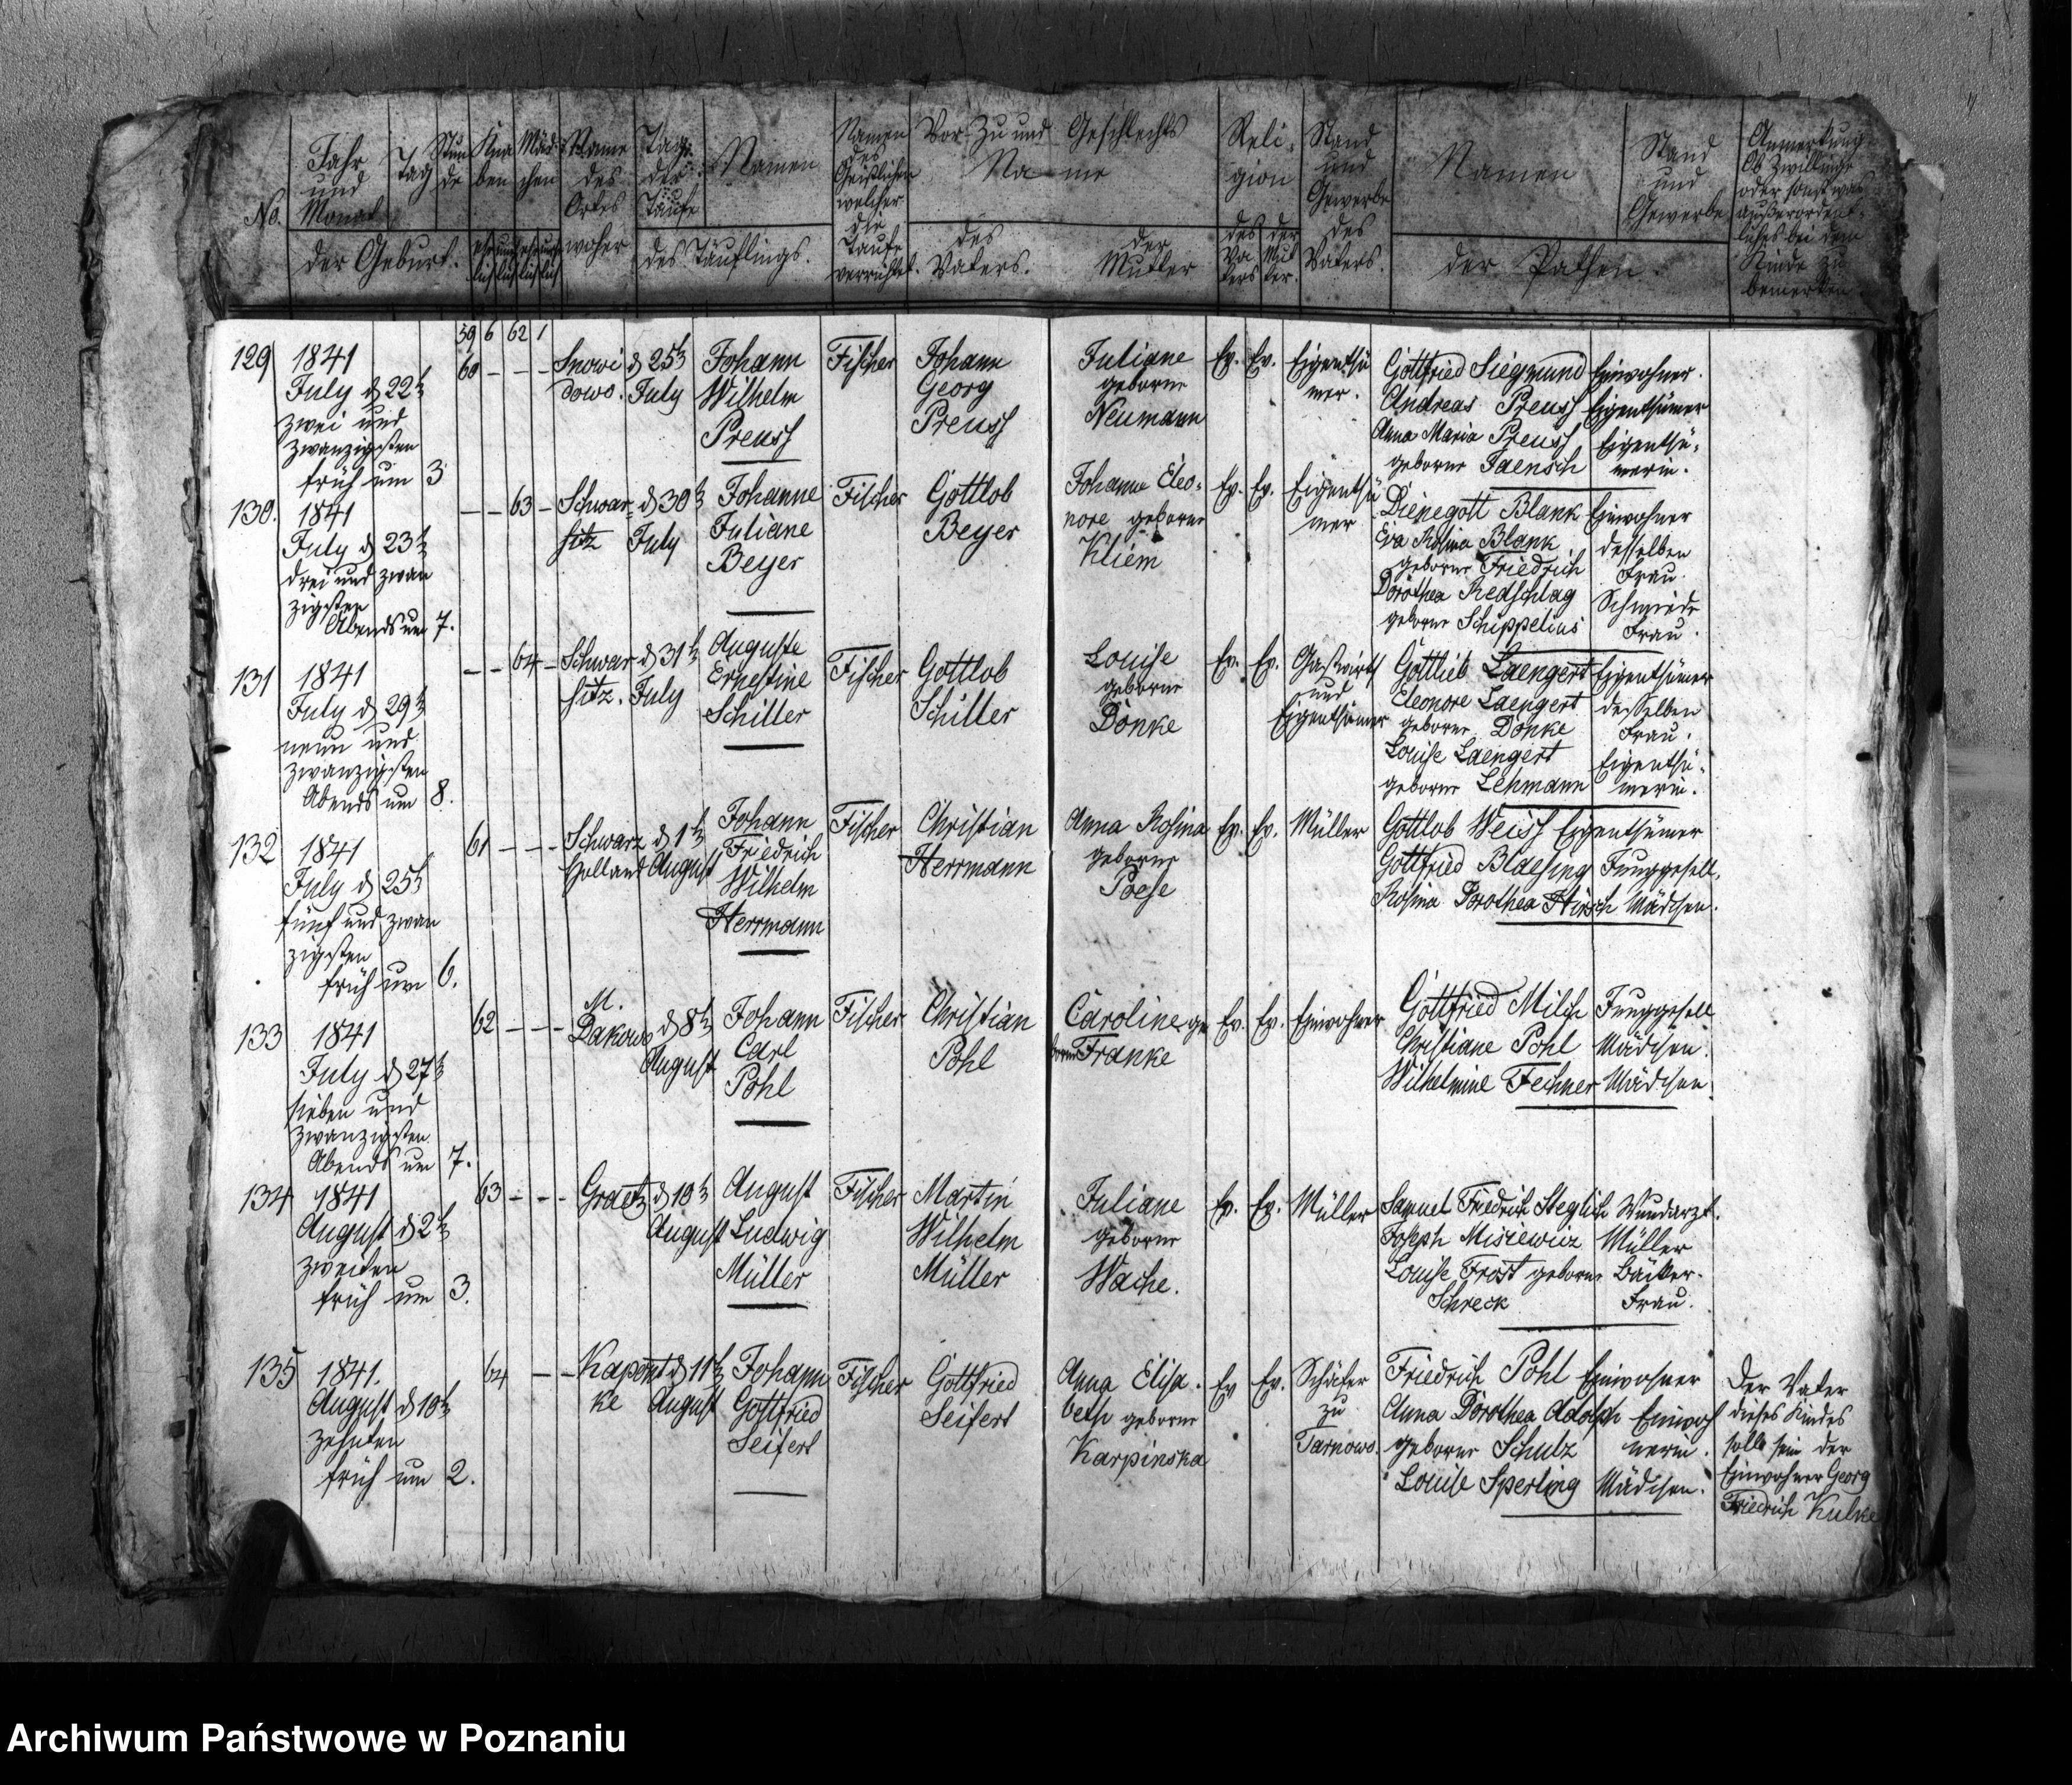 No.
Jahr und Monat
Tag
Stunde
der Geburt.
Knaben
Mädchen
Name des Ortes woher
Tage der Taufe
Namen
des Täuflings.
Namen des Geistlichen welcher die Taufe verrichtet.
Vor- Zu und Geschlechts
Na-me
des Vaters.
der Mutter
Religion
des Vaters
der Mutter.
Stand und Gewerbe des Vaters.
Namen
Stand und Gewerbe
der Pathen.
Anmerkung
Ob Zwillinge
oder sonst was
außerordent-
liches bei dem
Kinde zu
bemerken.
59 6 62 1
129 1841
July d 22t
zwei und
zwanzigsten
früh um 3
60 - - -
dowo.
d 25t
July
Johann
Wilhelm
Preuss
Fischer
Johann
Georg
Preuss
Juliane
geborne
Neumann
Ev. Ev.
Eigenthü
mer.
Gottfried Siegmund Einwohner.
Andreas Preuss Eigenthümer
Anna Maria Preuss Eigenthü-
geborne Jaensch merin.
130. 1841
July d 23t
drei und zwan
zigsten
Abends um 7.
- - 63 -
Schwar-
sitz
d 30t
July
Johanne
Juliane
Beyer
Fischer
Gottlob
Beyer
Johanne Eleo-
nore geborne
Kliem
Ev. Ev.
Eigenthü
mer
Dienegott Blank Einwohner
Eva Rosina Blank desselben
geborne Friedrich Frau.
Dorothea Redschlag Schmiede
geborne Schippelius Frau.
131 1841
July d 29t
neun und
zwanzigsten
Abends um 8.
- - 64 -
Schwar
sitz.
d 31t
July
Auguste
Ernestine
Schiller
Fischer
Gottlob
Schiller
Louise
geborne
Donke
Ev. Ev.
Gastwirth
und
Eigenthümer
Gottlieb Laengert Eigenthümer
Eleonore Laengert desselben
geborne Donke Frau.
Louise Laengert Eigenthü-
geborne Lehmann merin.
132 1841
July d 25t
fünf und zwan
zigsten
früh um 6.
61 - - -
Schwarz
Holland
d 1t
August
Johann
Friedrich
Wilhelm
Herrmann
Fischer
Christian
Herrmann
Anna Rosina
geborne
Poese
Ev. Ev.
Müller
Gottlob Weiss Eigenthümer
Gottfried Blaesing Junggesell.
Rosina Dorothea Hirsch Mädchen.
133 1841
July d 27t
sieben und
zwanzigsten
Abends um 7.
62 - - -
M.
Dakowo
d 8t
August
Johann
Carl
Pohl
Fischer
Christian
Pohl
Caroline ge
borne Franke
Ev. Ev.
Einwohner
Gottfried Milch Junggesell
Christiane Pohl Mädchen.
Wilhelmine Fechner Mädchen.
134 1841
August d 2t
zweiten
früh um 3.
63 - - -
Graetz
d 10t
August
August
Ludwig
Müller
Fischer
Martin
Wilhelm
Müller
Juliane
geborne
Wache.
Ev. Ev.
Müller
Samuel Friedrich Steglich Wundarzt.
Joseph Misiewicz Müller
Louise Frost geborne Bäcker-
Schreck Frau.
135 1841.
August d 10t
zehnten
früh um 2.
64 - -
ke
d 11t
August
Johann
Gottfried
Seifert
Fischer
Gottfried
Seifert
Anna Elisa-
beth geborne
Karpinska
Ev Ev.
Schäfer
zu
Tarnowo.
Friedrich Pohl Einwohner
Anna Dorothea Adolph Einwoh
geborne Schulz nerin.
Louise Sperling Mädchen.
Der Vater
dieses Kindes
solle sein der
Einwohner Georg
Friedrich Kulke
Archiwum Państwowe w Poznaniu